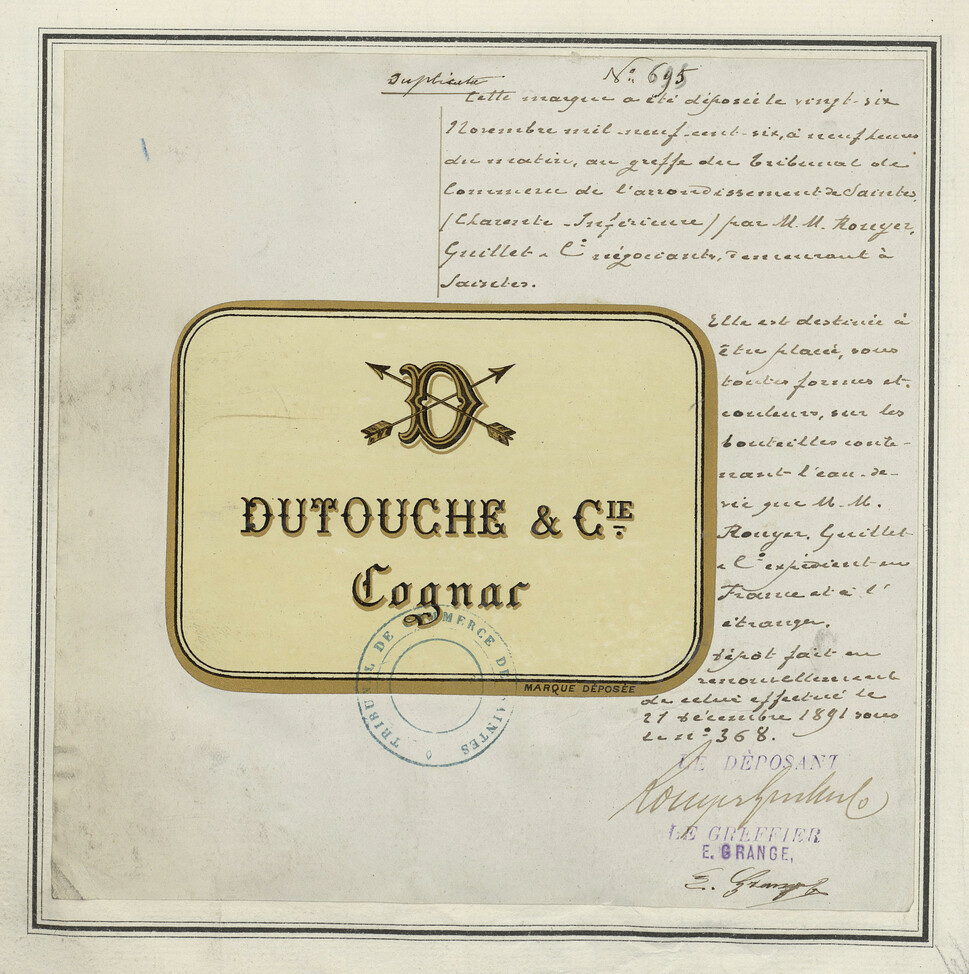 Duplicata
N° 695
Cette marque a été déposée le vingt-six
Novembre mil-neuf-cent-six, à neuf heures
du matin, au greffe du Tribunal de
Commerce de l'arrondissement de Saintes,
(Charente-Inférieure) par M.M. Rouyer,
Guillet & Cie négociants, demeurant à
Saintes.
Elle est destinée à
être placée, sous
toutes formes et
couleurs, sur les
bouteilles conte-
nant l'eau-de-
vie que M.M.
Rouyer, Guillet
& Cie expédient en
France et à l'
étranger.
Dépôt fait en
renouvellement
de celui effectué le
21 décembre 1891 sous
le n° 368.
D
DUTOUCHE & CIE
Cognac
MARQUE DÉPOSÉE
TRIBUNAL DE COMMERCE DE SAINTES
LE DÉPOSANT
Rouyer Guillet & Co
LE GREFFIER
E. GRANGE,
E. Grange